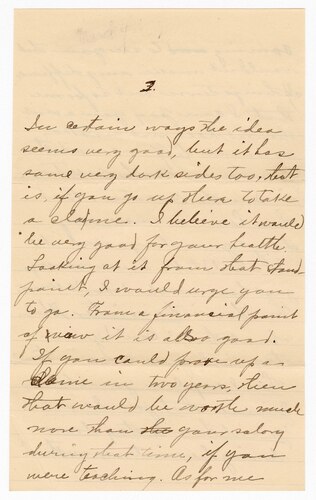 3.
In certain ways the idea
seems very good, but it has
some very dark sides too, that
is, if you go up there to take
a claime. I believe it would
be very good for your health.
Looking at it from that stand
point I would urge you
to go. From a financial point
of view it is also good.
If you could prove up a
claime in two years, then
that would be worth much
more than the your salary
during that time, if you
were teaching. As for me